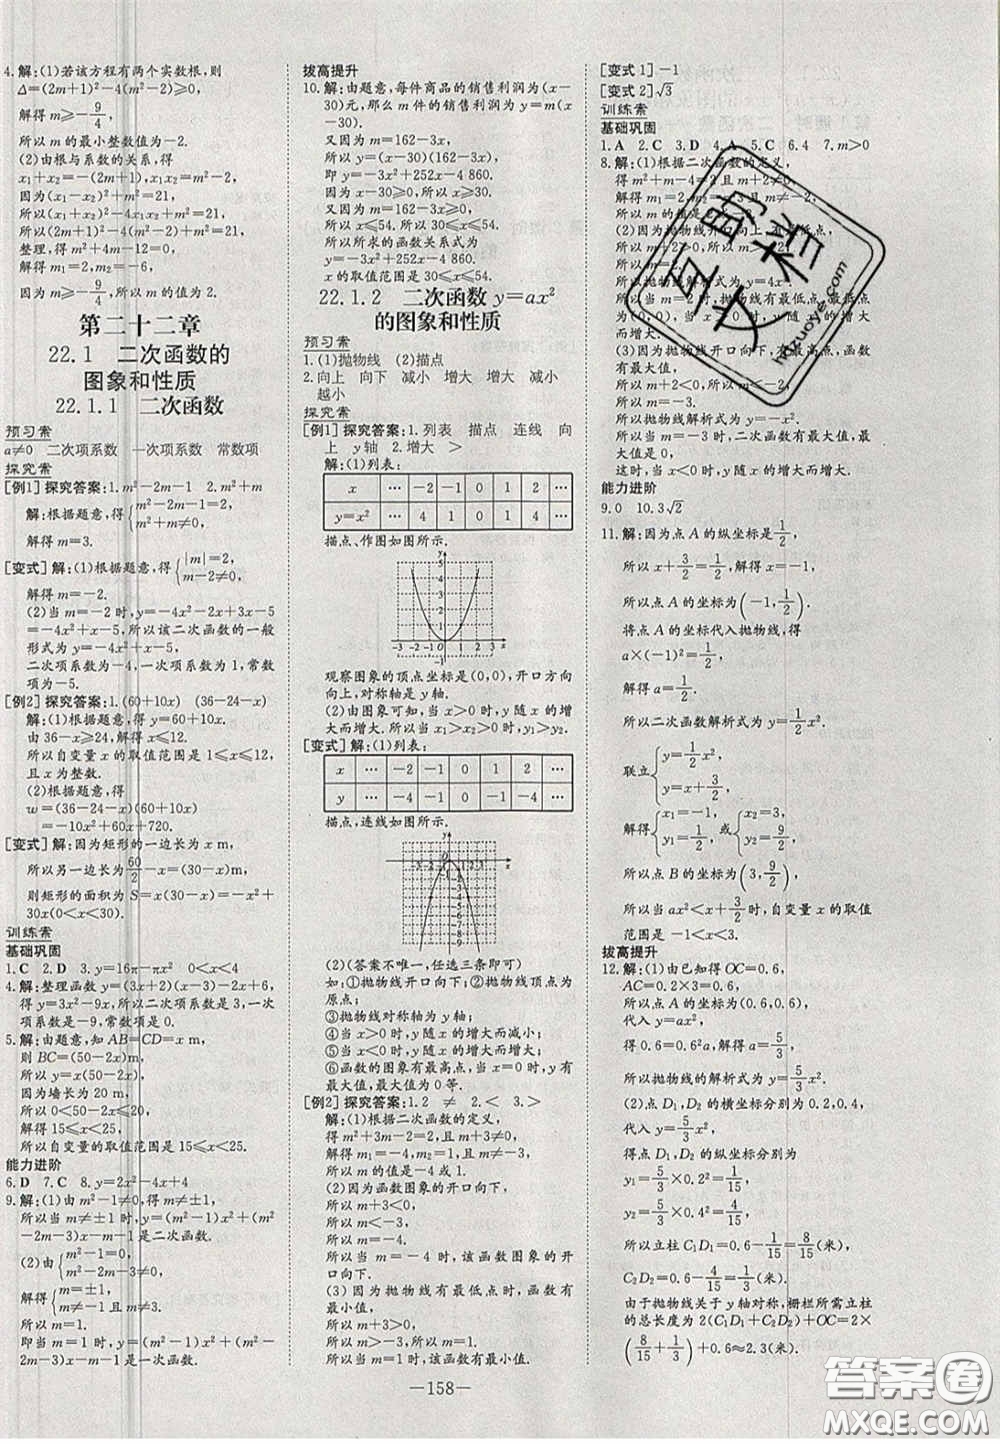 4.解:(1)若该方程有两个实数根,则
Δ=(2m+1)²-4(m²-2)≥0,
解得 m≥-9/4,
所以 m 的最小整数值为-2.
(2)由根与系数的关系,得
x₁+x₂=-(2m+1),x₁x₂=m²-2,
因为(x₁-x₂)²+m²=21,
所以(x₁+x₂)²-4x₁x₂+m²=21,
所以(2m+1)²-4(m²-2)+m²=21,
整理,得 m²+4m-12=0,
解得 m₁=2,m₂=-6,
因为 m≥-9/4,所以 m 的值为 2.
第二十二章
22.1 二次函数的
图象和性质
22.1.1 二次函数
预习案
a≠0 二次项系数 一次项系数 常数项
探究案
[例1]探究答案:1.m²-2m-1 2.m²+m
解:根据题意,得{m²-2m-1=2, m²+m≠0,
解得 m=3.
[变式]解:(1)根据题意,得{|m|=2, m-2≠0,
解得 m=-2.
(2)当 m=-2 时,y=-4x²-2x+3x-5
=-4x²+x-5,所以该二次函数的一般
形式为 y=-4x²+x-5.
二次项系数为-4,一次项系数为1,常数
项为-5.
[例2]探究答案:1.(60+10x) (36-24-x)
解:(1)根据题意,得 y=60+10x.
由 36-x≥24,解得 x≤12.
所以自变量 x 的取值范围是 1≤x≤12,
且 x 为整数.
(2)根据题意,得
w=(36-24-x)(60+10x)
=-10x²+60x+720.
[变式]解:因为矩形的一边长为 x m,
所以另一边长为60/2-x=(30-x)m,
则矩形的面积为 S=x(30-x)=-x²+
30x(0<x<30).
训练案
基础巩固
1.C 2.D 3.y=16π-πx² 0<x<4
4.解:整理函数 y=(3x+2)(x-3)-2x+6,
得 y=3x²-9x,所以二次项系数是 3,一次
项系数是-9,常数项是 0.
5.解:由题意,知 AB=CD=x m,
则 BC=(50-2x)m,
所以 y=x(50-2x),
因为墙长为 20 m,
所以 0<50-2x≤20,
解得 15≤x<25,
所以自变量的取值范围是 15≤x<25.
能力进阶
6.D 7.C 8.y=2x²-4x+4
9.解:(1)由 m²-1≠0,得 m≠±1,
所以当 m≠±1 时,y=(m²-1)x²+(m²
-2m-3)x-m-1 是二次函数.
(2)由{m²-1=0, m²-2m-3≠0,
解得{m=±1, m≠-1且m≠3,
所以 m=1.
即当 m=1 时,y=(m²-1)x²+(m²-
2m-3)x-m-1 是一次函数.
拔高提升
10.解:由题意,每件商品的销售利润为(x-
30)元,那么 m 件的销售利润为 y=m(x
-30).
又因为 m=162-3x,
所以 y=(x-30)(162-3x),
即 y=-3x²+252x-4 860.
因为 x-30≥0,所以 x≥30.
又因为 m≥0,所以 162-3x≥0,
所以 x≤54.所以 30≤x≤54.
所以所求的函数关系式为
y=-3x²+252x-4 860.
x 的取值范围是 30≤x≤54.
22.1.2 二次函数 y=ax²
的图象和性质
预习案
1.(1)抛物线 (2)描点
2.向上 向下 减小 增大 增大 减小
越小
探究案
[例1]探究答案:1.列表 描点 连线 向
上 y轴 2.增大 >
解:(1)列表:
x … -2 -1 0 1 2 …
y=x² … 4 1 0 1 4 …
描点、作图如图所示.
观察图象的顶点坐标是(0,0),开口方向
向上,对称轴是 y轴.
(2)由图象可知,当 x>0 时,y 随 x 的增
大而增大.所以当 x₁>x₂ 时,y₁>y₂.
[变式]解:(1)列表:
x … -2 -1 0 1 2 …
y … -4 -1 0 -1 -4 …
描点,连线如图所示.
(2)(答案不唯一,任选三条即可)
如:①抛物线开口向下;②抛物线顶点为
原点;
③抛物线对称轴为 y轴;
④当 x>0 时,y 随 x 的增大而减小;
⑤当 x<0 时,y 随 x 的增大而增大;
⑥函数的图象有最高点,当 x=0 时,
y 有最大值,最大值为 0等.
[例2]探究答案:1.2 ≠ 2.< 3.>
解:(1)根据二次函数的定义,
得 m²+3m-2=2 且 m+3≠0,
解得 m₁=-4,m₂=1,
所以 m 的值是-4 或 1.
(2)因为函数图象的开口向下,
所以 m+3<0,
所以 m<-3,
所以 m=-4.
所以当 m=-4 时,该函数图象的开
口向下.
(3)因为抛物线有最低点时,函数
有最小值,
所以 m+3>0,
所以 m>-3,所以 m=1.
所以当 m=1 时,该函数有最小值.
[变式1]-1
[变式2]√3
训练案
基础巩固
1.A 2.C 3.D 4.A 5.C 6.4 7.m>0
8.解:(1)根据二次函数的定义,
得 m²+m-4=2 且 m+2≠0,
解得 m₁=2,m₂=-3,
最大值,
所以 m+2<0,即 m<-2,
所以 m=-3.
所以抛物线解析式为 y=-x².
所以当 m=-3 时,函数有最大值,最大
值是 0,
这时,当 x<0 时,y 随 x 的增大而增大.
能力进阶
9.0 10.3√2
11.解:因为点 A 的纵坐标是1/2,
所以 x+3/2=1/2,解得 x=-1,
所以点 A 的坐标为(-1,1/2)
将点 A 的坐标代入抛物线,得
a×(-1)²=1/2,
解得 a=1/2,
所以二次函数解析式为 y=1/2x².
联立{y=1/2x², y=x+3/2,
解得{x₁=-1, y₁=1/2,或{x₂=3, y₂=9/2,
所以点 B 的坐标为(3,9/2),
所以当 ax²<x+3/2时,自变量 x 的取值
范围是-1<x<3.
拔高提升
12.解:(1)由已知得 OC=0.6,
AC=0.2×3=0.6,
所以点 A 的坐标为(0.6,0.6),
代入 y=ax²,
得 0.6=0.6²a,解得 a=5/3,
所以抛物线的解析式为 y=5/3x².
(2)点 D₁,D₂ 的横坐标分别为 0.2,0.4,
代入 y=5/3x²,
得点 D₁,D₂ 的纵坐标分别为
y₁=5/3×0.2²=1/15,
y₂=5/3×0.4²=4/15,
所以立柱 C₁D₁=0.6-1/15=8/15(米),
C₂D₂=0.6-4/15=1/3(米).
由于抛物线关于 y轴对称,栅栏所需立柱
的总长度为 2(C₁D₁+C₂D₂)+OC=2×
(8/15+1/3)+0.6≈2.3(米).
-158-
答案圈
MXQE.COM